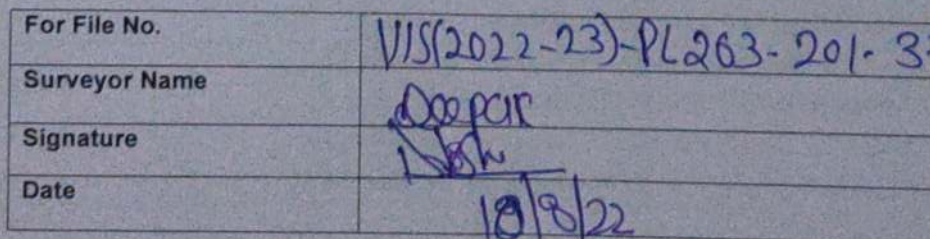 For File No. VIS(2022-23)-PL263-201-3
Surveyor Name Deepak
Signature
Date 18/8/22